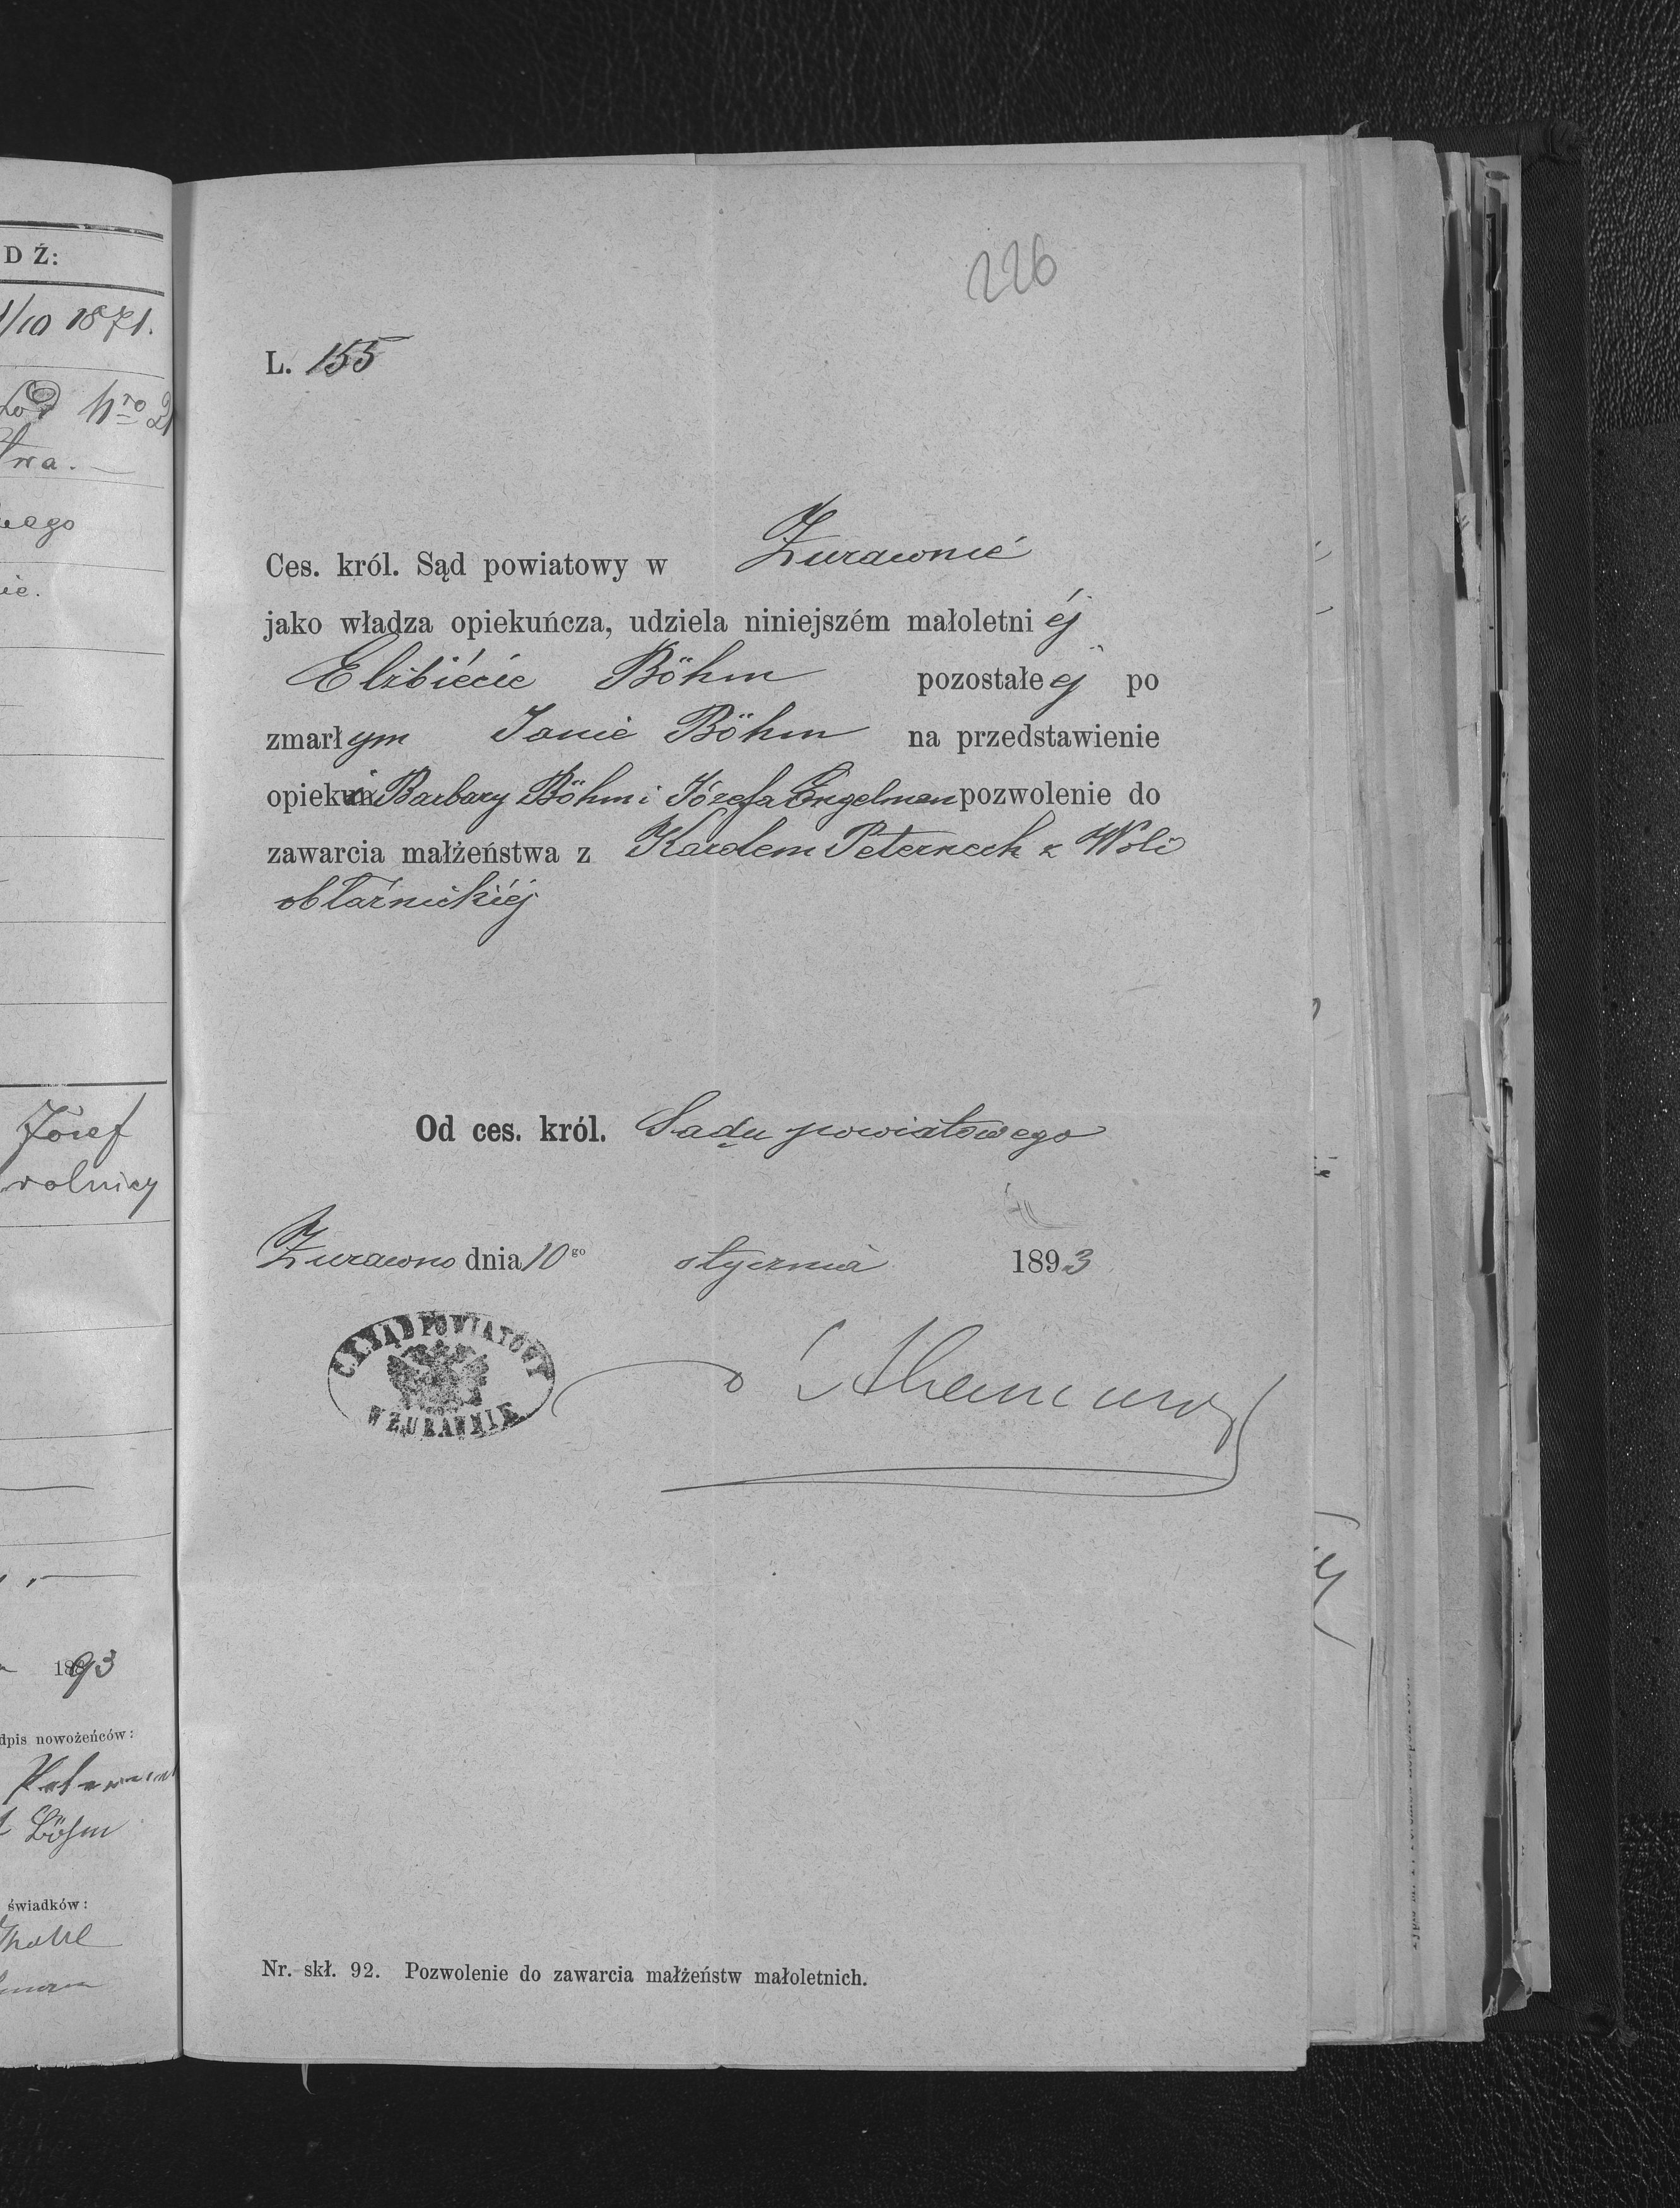 D Ź:
/10 1871.
Nro 21
twa. —
nego
nie.
Józef
rolnicy
1893
dpis nowożeńców:
Böhm
świadków:
226
L. 155
Ces. król. Sąd powiatowy w Żurawnie
jako władza opiekuńcza, udziela niniejszém małoletni éj
Elżbiécie Böhm pozostałe ej po
zmarłym Janie Böhm na przedstawienie
opieku Barbary Böhm i Józefa Engelman pozwolenie do
zawarcia małżeństwa z Karolem Peterneck z Woli
obłaźnickiéj
Od ces. król. Sądu powiatowego
Żurawno dnia 10go stycznia 1893
C.K.SĄD POWIATOWY
W ŻURAWNIE
Nr. skł. 92. Pozwolenie do zawarcia małżeństw małoletnich.